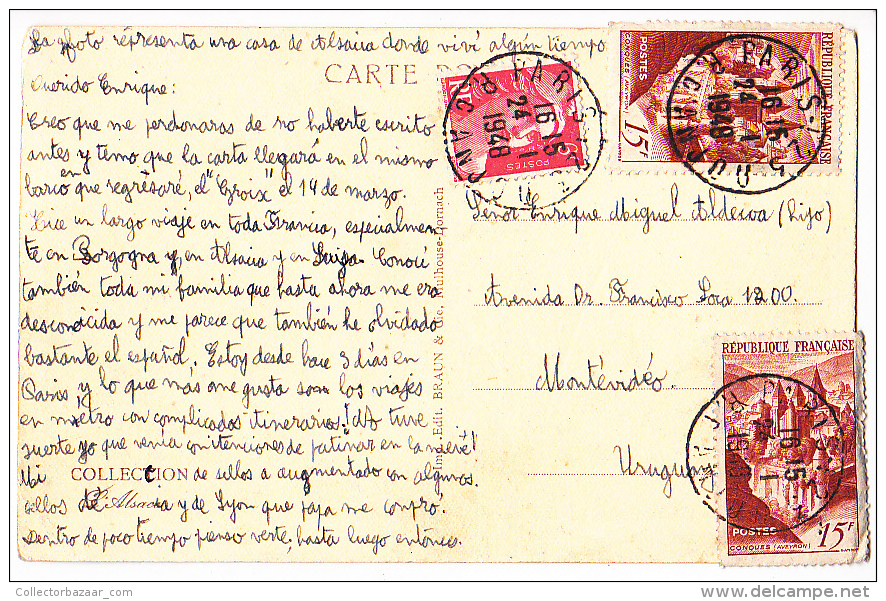 La foto representa una casa de Alsacia donde viví algún tiempo
CARTE
Querido Enrique:
Creo que me perdonaras de no haberte escrito
antes y temo que la carta llegará en el mismo
barco en que regresaré, el "Groix" el 14 de marzo.
Hice un largo viaje en toda Francia, especialmen-
te en Borgogna y en Alsacia y en Suiza. Conocí
también toda mi familia que hasta ahora me era
desconocida y me parece que también he olvidado
bastante el español. Estoy desde hace 3 días en
Paris y lo que más me gusta son los viajes
en metro con complicados itinerarios! No tuve
suerte yo que venía con intenciones de patinar en la nieve!
Mi COLLECTION de sellos a augmentado con algunos
sellos de L'Alsacia y de Lyon que papa me compro.
Dentro de poco tiempo pienso verte, hasta luego entonces.
Imp. Edit. BRAUN & Cie, Mulhouse-Dornach
Señor Enrique Miguel Aldecoa (Hijo)
Avenida Dr. Francisco Soca 1200.
Montévidéo
Uruguay
POSTES
PARIS
16 15
24 1
1948
RÉPUBLIQUE FRANÇAISE
POSTES
CONQUES (AVEYRON)
15F
PARIS
16 15
24 1
1948
RÉPUBLIQUE FRANÇAISE
16 15
24 1
POSTES
15F
CONQUES (AVEYRON)
Collectorbazaar_com
www.delcampe.net